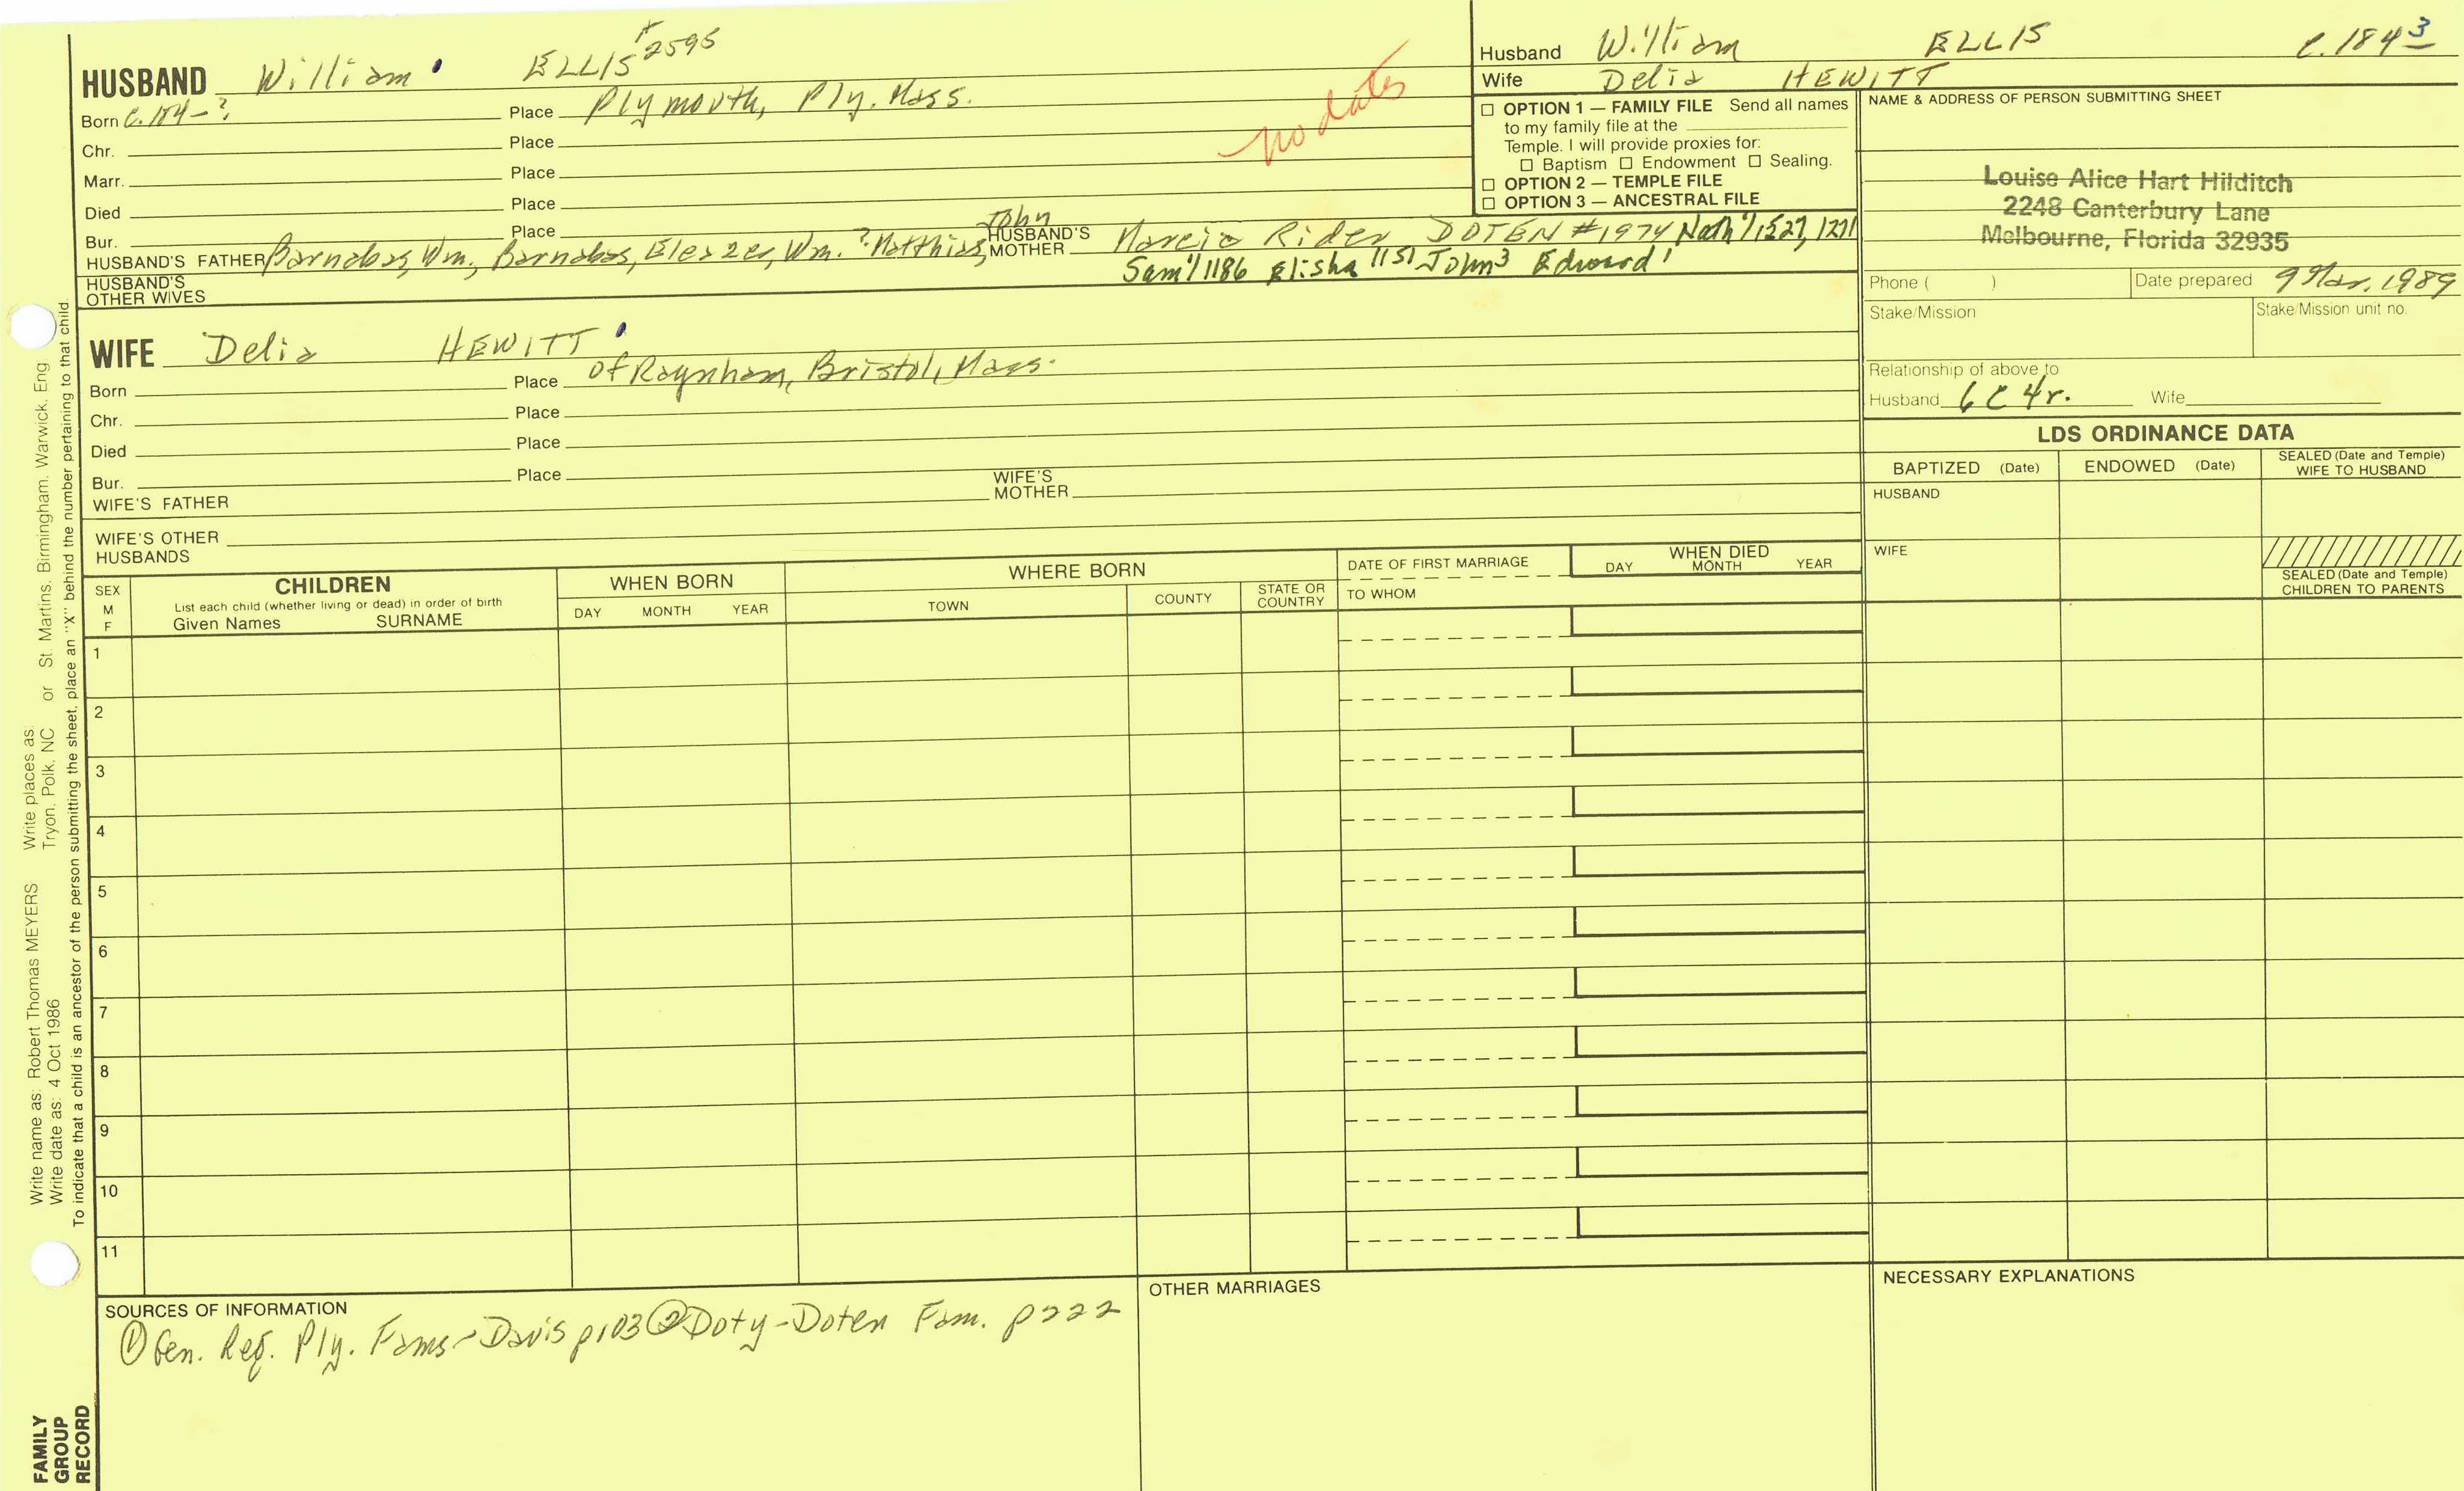 HUSBAND William ELLIS #2595
Born c. 184-? Place Plymouth, Ply. Mass.
Chr. Place
Marr. Place
Died Place
Bur. Place
no dates
HUSBAND'S FATHER Barnabas, Wm., Barnabas, Eleazer, Wm. ? Matthias, John
HUSBAND'S MOTHER Marcia Rider DOTEN #1974 Nath'l 1527, 1271
Sam'l 1186 Elisha 1151 John3 Edward1
HUSBAND'S OTHER WIVES
WIFE Delia HEWITT
Born Place of Raynham, Bristol, Mass.
Chr. Place
Died Place
Bur. Place
WIFE'S FATHER WIFE'S MOTHER
WIFE'S OTHER HUSBANDS
Husband William ELLIS c. 1843
Wife Delia HEWITT
☐ OPTION 1 — FAMILY FILE Send all names
to my family file at the
Temple. I will provide proxies for:
☐ Baptism ☐ Endowment ☐ Sealing.
☐ OPTION 2 — TEMPLE FILE
☐ OPTION 3 — ANCESTRAL FILE
NAME & ADDRESS OF PERSON SUBMITTING SHEET
Louise Alice Hart Hilditch
2248 Canterbury Lane
Melbourne, Florida 32935
Phone ( ) Date prepared 9 Mar. 1989
Stake/Mission Stake/Mission unit no.
Relationship of above to
Husband 6C 4r. Wife
LDS ORDINANCE DATA
BAPTIZED (Date) ENDOWED (Date) SEALED (Date and Temple) WIFE TO HUSBAND
HUSBAND
WIFE
SEALED (Date and Temple)
CHILDREN TO PARENTS
SEX M F
CHILDREN
List each child (whether living or dead) in order of birth
Given Names SURNAME
WHEN BORN
DAY MONTH YEAR
WHERE BORN
TOWN COUNTY STATE OR COUNTRY
DATE OF FIRST MARRIAGE
TO WHOM
WHEN DIED
DAY MONTH YEAR
1
2
3
4
5
6
7
8
9
10
11
SOURCES OF INFORMATION
① Gen. Reg. Ply. Fams - Davis p103 ② Doty-Doten Fam. p222
OTHER MARRIAGES
NECESSARY EXPLANATIONS
Write name as: Robert Thomas MEYERS Write places as: or St. Martins, Birmingham, Warwick, Eng
Write date as: 4 Oct 1986 Tryon, Polk, NC
To indicate that a child is an ancestor of the person submitting the sheet, place an "X" behind the number pertaining to that child.
FAMILY
GROUP
RECORD